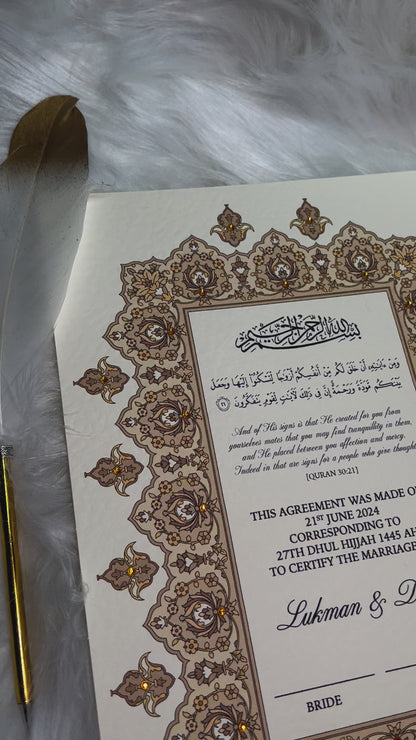 بسم الله الرحمن الرحيم
وَمِنْ ءَايَـٰتِهِۦٓ أَنْ خَلَقَ لَكُم مِّنْ أَنفُسِكُمْ أَزْوَٰجًا لِّتَسْكُنُوٓا۟ إِلَيْهَا وَجَعَلَ
بَيْنَكُم مَّوَدَّةً وَرَحْمَةً إِنَّ فِى ذَٰلِكَ لَـَٔايَـٰتٍ لِّقَوْمٍ يَتَفَكَّرُونَ ٢١
And of His signs is that He created for you from
yourselves mates that you may find tranquillity in them,
and He placed between you affection and mercy.
Indeed in that are signs for a people who give thought
[QURAN 30:21]
THIS AGREEMENT WAS MADE
21ST JUNE 2024
CORRESPONDING TO
27TH DHUL HIJJAH 1445 AH
TO CERTIFY THE MARRIAGE
Lukman &
BRIDE